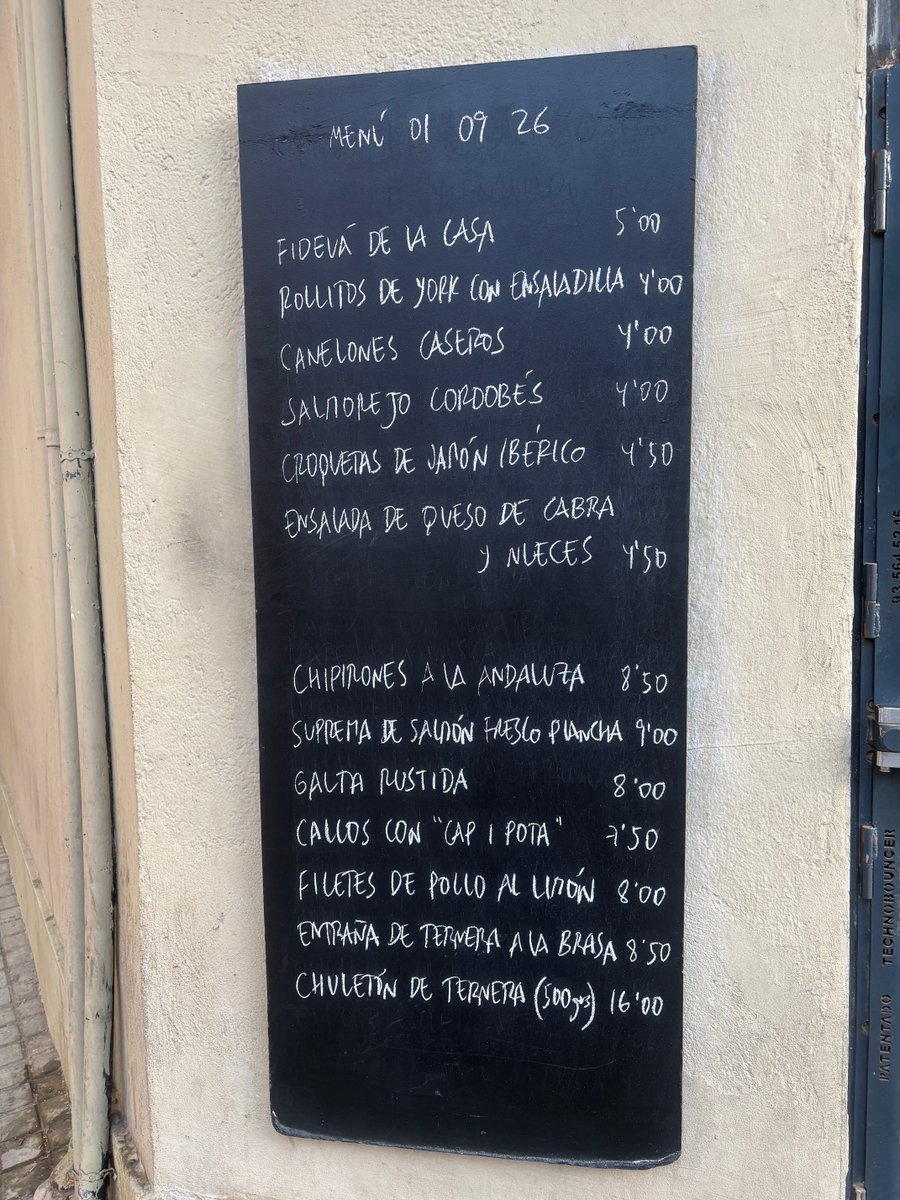 MENÚ 01 09 26
FIDEVÁ DE LA CASA 5'00
ROLLITOS DE YORK CON ENSALADILLA 4'00
CANELONES CASEROS 4'00
SALMOREJO CORDOBÉS 4'00
CROQUETAS DE JAMÓN IBÉRICO 4'50
ENSALADA DE QUESO DE CABRA
Y NUECES 4'50
CHIPIRONES A LA ANDALUZA 8'50
SUPREMA DE SALMÓN FRESCO PLANCHA 9'00
GALTA RUSTIDA 8'00
CALLOS CON "CAP I POTA" 7'50
FILETES DE POLLO AL LIMÓN 8'00
ENTRAÑA DE TERNERA A LA BRASA 8'50
CHULETÓN DE TERNERA (500grs) 16'00
93 564 52 15
TECHNOBOUNCER
PATENTADO